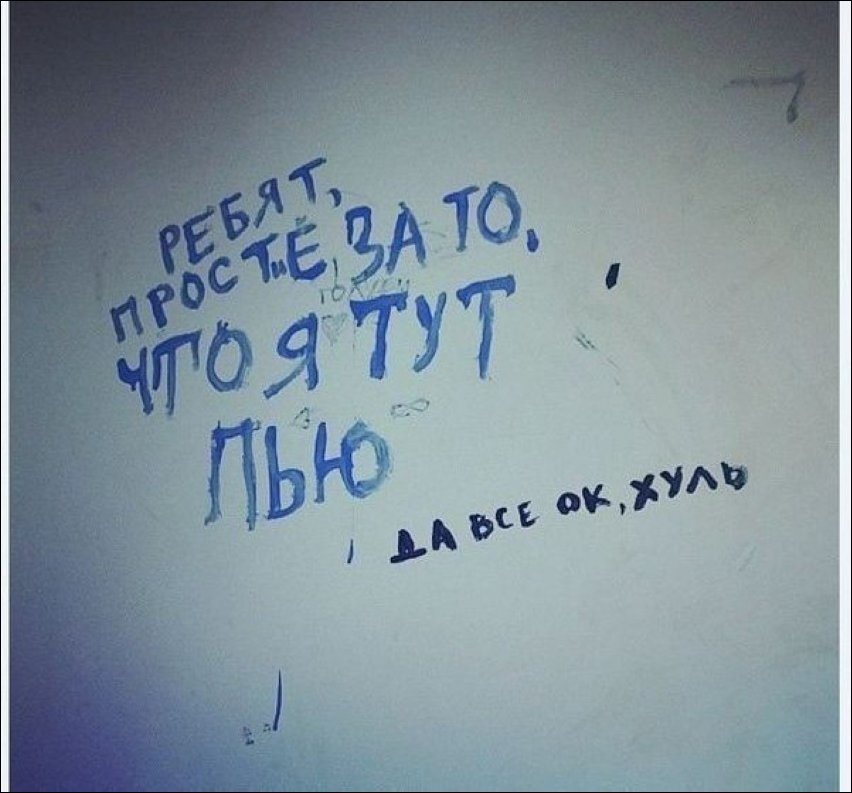 РЕБЯТ,
ПРОСТИТЕ, ЗА ТО,
ЧТО Я ТУТ
ПЬЮ
ДА ВСЕ ОК, ХУЛЬ